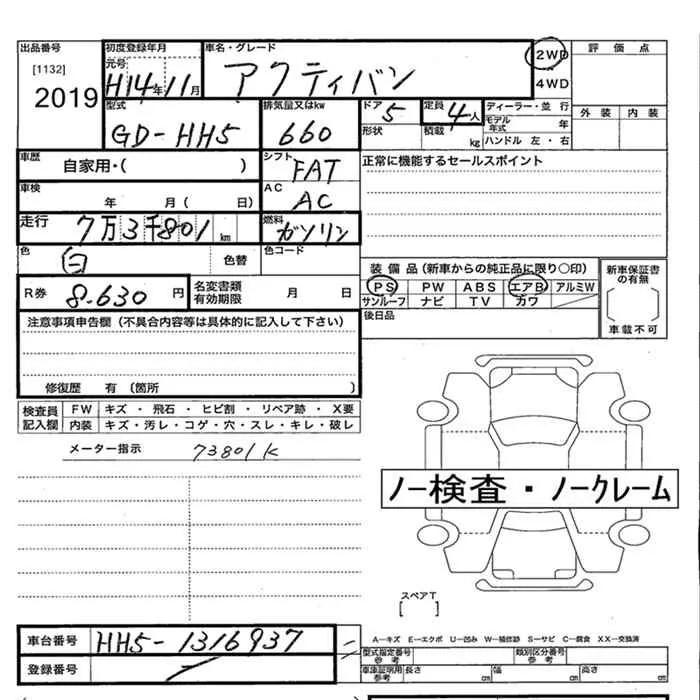 出品番号 初度登録年月 車名・グレード 2WD 評価点
[1132] 元号
2019 H14年11月 アクティバン 4WD
型式 排気量又はkw ドア 定員 ディーラー・並行 外装 内装
GD-HH5 660 5 4人 モデル年式 年
形状 積載 kg ハンドル 左・右
車歴 自家用・( ) シフト FAT 正常に機能するセールスポイント
車検 年 月( 日) AC AC
走行 7万3千801km 燃料 ガソリン
色 白 色替 色コード
装備品(新車からの純正品に限り○印) 新車保証書の有無
R券 8.630円 名変書類有効期限 月 日 PS PW ABS エアB アルミW
サンルーフ ナビ TV カワ 車載不可
注意事項申告欄(不具合内容等は具体的に記入して下さい) 後日品
修復歴 有(箇所 )
検査員記入欄 FW キズ・飛石・ヒビ割・リペア跡・X要
内装 キズ・汚レ・コゲ・穴・スレ・キレ・破レ
メーター指示 73801K
ノー検査・ノークレーム
スペアT
[ ]
車台番号 HH5-1316937
A−キズ E−エクボ U−凹み W−補修跡 S−サビ C−腐食 XX−交換済
型式指定番号参考 類別区分番号参考
登録番号 車庫証明用参考 長さ cm 幅 cm 高さ cm